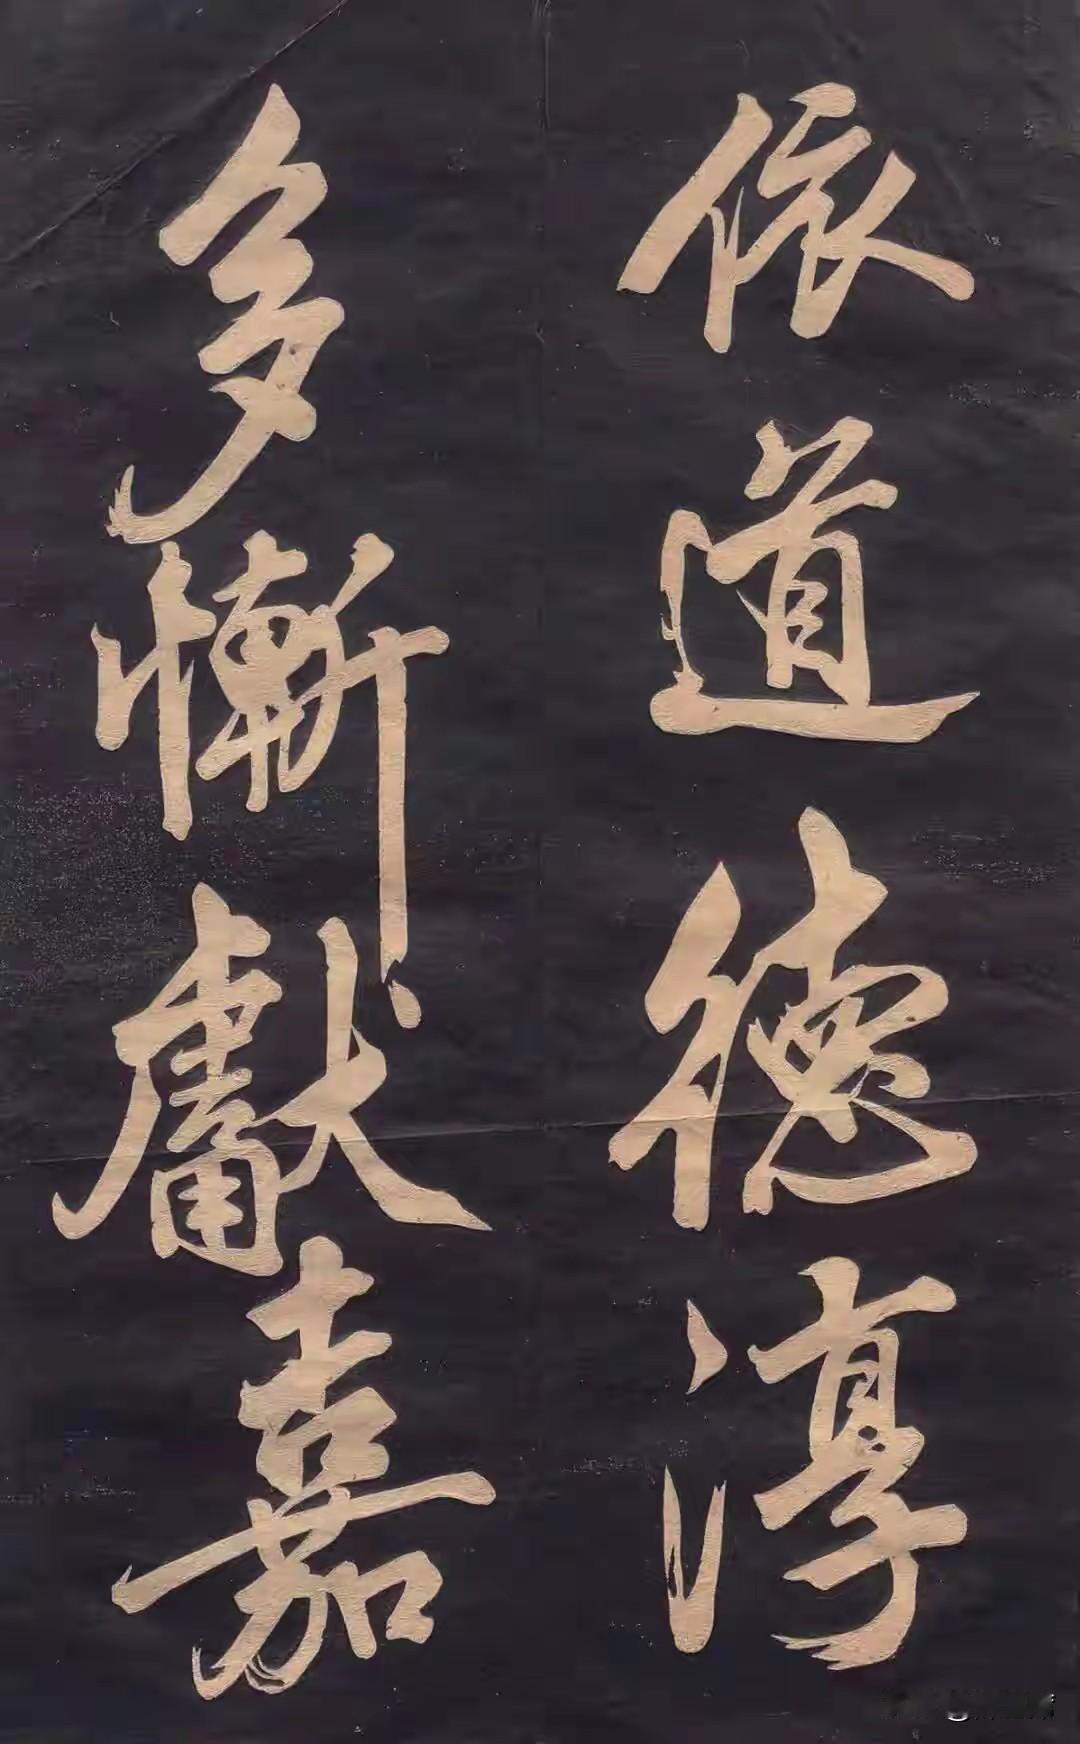 依道德淳
多慚獻嘉